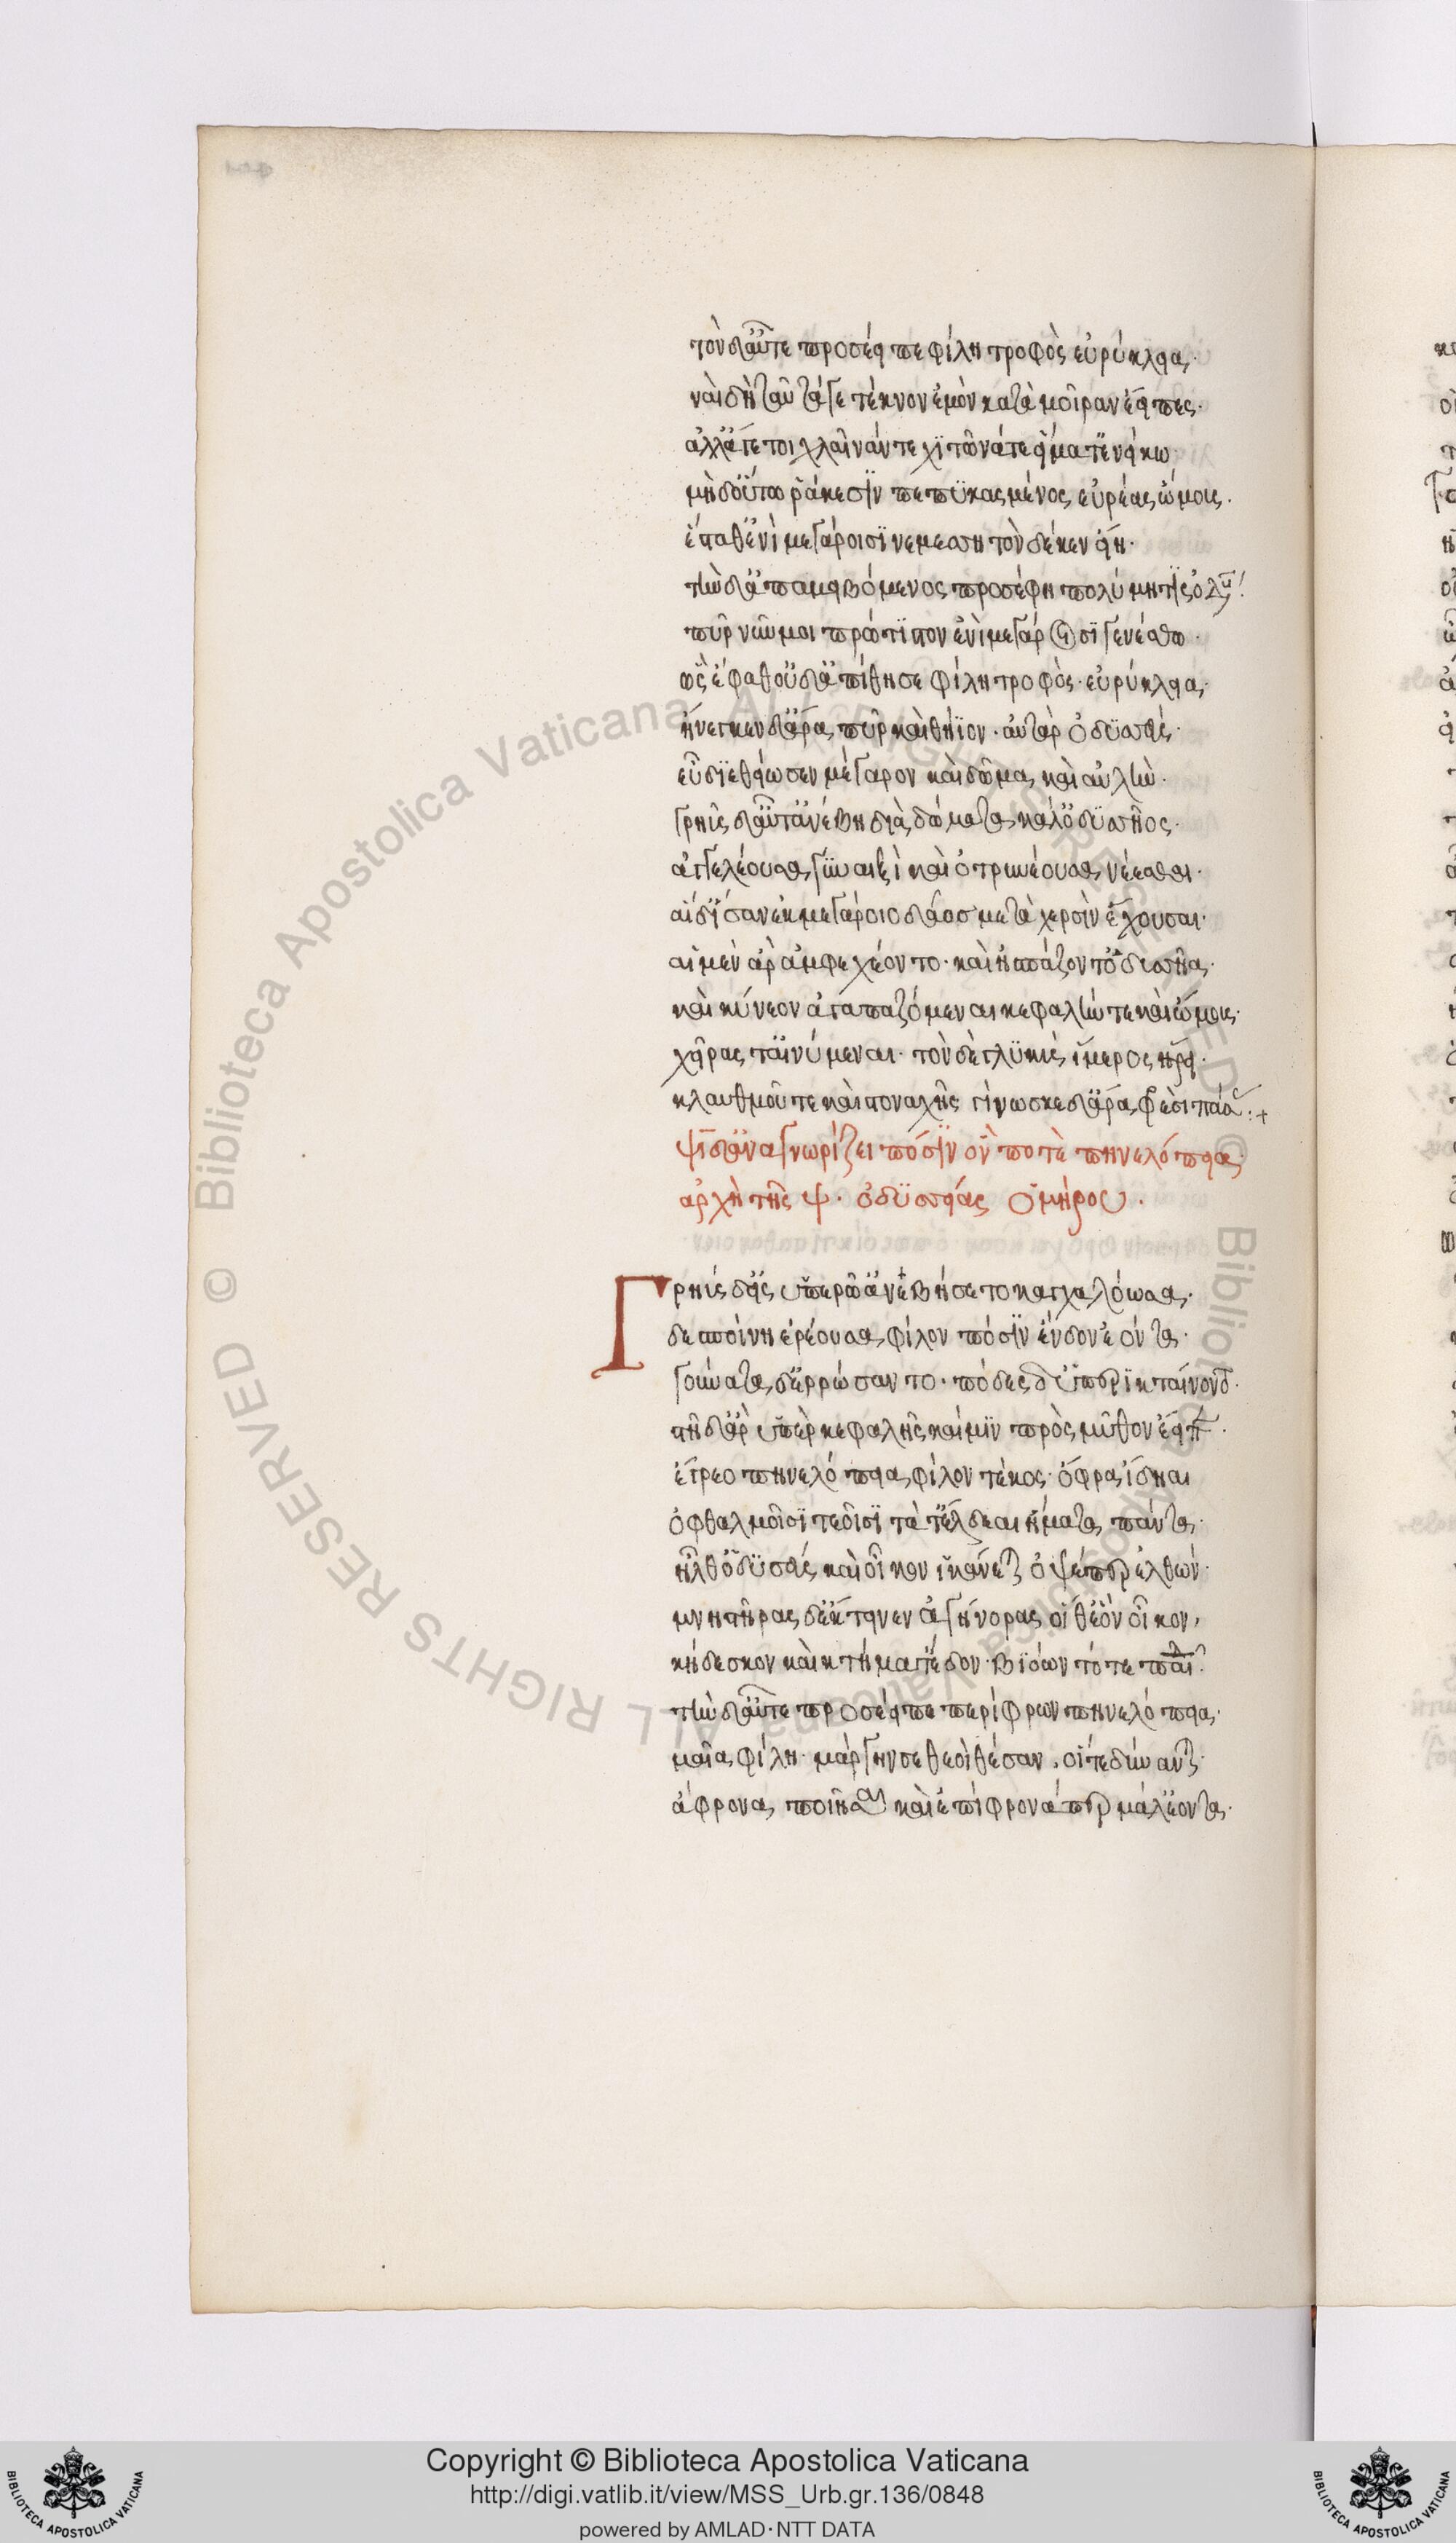 τὸν δ' αὖτε προσέειπε φίλη τροφὸς εὐρύκλεια·
ναὶ δὴ ταῦτά γε τέκνον ἐμὸν κατὰ μοῖραν ἔειπες·
ἀλλ' ἄγε τοι χλαῖνάν τε χϊτῶνά τε εἵματ' ἐνείκω
μὴδ' οὕτω ῥάκεσϊν πεπϋκασμένος εὐρέας ὤμους·
ἕσταθ' ἐνὶ μεγάροισϊ νεμεσση τὸν δέ κεν εἴη·
τὴν δ' ἀπαμειβόμενος προσέφη πολύμητϊς ὀδυ
πῦρ νῦν μοι πρώτϊστον ἐνὶ μεγάροισϊ γενέσθω·
ὣς ἔφατ' οὐδ' ἀπίθησε φίλη τροφὸς εὐρύκλεια·
ἤνεγκεν δ' ἄρα πῦρ καὶ θήϊον· αὐτὰρ ὀδϋσσεὺς·
εὖ δϊεθείωσεν μέγαρον καὶ δῶμα καὶ αὐλὴν·
γρηῒς δ' αὖτ' ἀνέβη διὰ δώματα κάλ' ὀδϋσσῆος·
ἀγγελέουσα γϋναιξὶ καὶ ὀτρυνέουσα νέεσθαι·
αἱ δ' ἴσαν ἐκ μεγάροιο δάος μετὰ χερσὶν ἔχουσαι·
αἱ μὲν ἄρ' ἀμφεχέοντο· καὶ ἠσπάζοντ' ὀδυσσῆα·
καὶ κύνεον ἀγαπαζόμεναι κεφαλήν τε καὶ ὤμους·
χεῖρας τ' αἰνύμεναι· τὸν δὲ γλϋκὺς ἵμερος ἥρει·
κλαυθμοῦ τε καὶ στοναχῆς γίνωσκε δ' ἄρα φρεσὶ πάσας:+
ψῖ δ' ἀναγνωρίζει πόσϊν ὅν ποτὲ πηνελόπεια·
ἀρχὴ τῆς ψ· ὀδϋσσείας ὁμήρου·
Γρηῢς δ' εἰς ὑπερῶ' ἀνεβήσετο καγχαλόωσα·
δεσποίνη ἐρέουσα φίλον πόσϊν ἔνδον ἐόντα·
γούνατα δ' ἐρρώσαντο· πόδες δ' ὑπερϊκταίνοντο·
στῆ δ' ἄρ ὑπὲρ κεφαλῆς καί μϊν πρὸς μῦθον ἔειπε·
ἔγρεο πηνελόπεια φίλον τέκος· ὄφρα ἴδηαι
ὀφθαλμοῖσϊ τεοῖσϊ τά τ' ἔλδεαι ἤματα πάντα·
ἦλθ' ὀδϋσεὺς καὶ οἶκον ἱκάνεται ὀψέ περ ἐλθών·
μνηστῆρας δ' ἔκτεινεν ἀγήνορας οἵ θ' ἑὸν οἶκον,
κήδεσκον καὶ κτήματ' ἔδον· βϊόων τό τε παῖ
τὴν δ' αὖτε προσέειπε περίφρων πηνελόπεια·
μαῖα φίλη· μάργην σε θεοὶ θέσαν, οἵ τε δύνανται·
ἄφρονα ποιῆσαι καὶ ἐπίφρονά περ μάλ' ἐόντα·
Copyright © Biblioteca Apostolica Vaticana
http://digi.vatlib.it/view/MSS_Urb.gr.136/0848
powered by AMLAD·NTT DATA